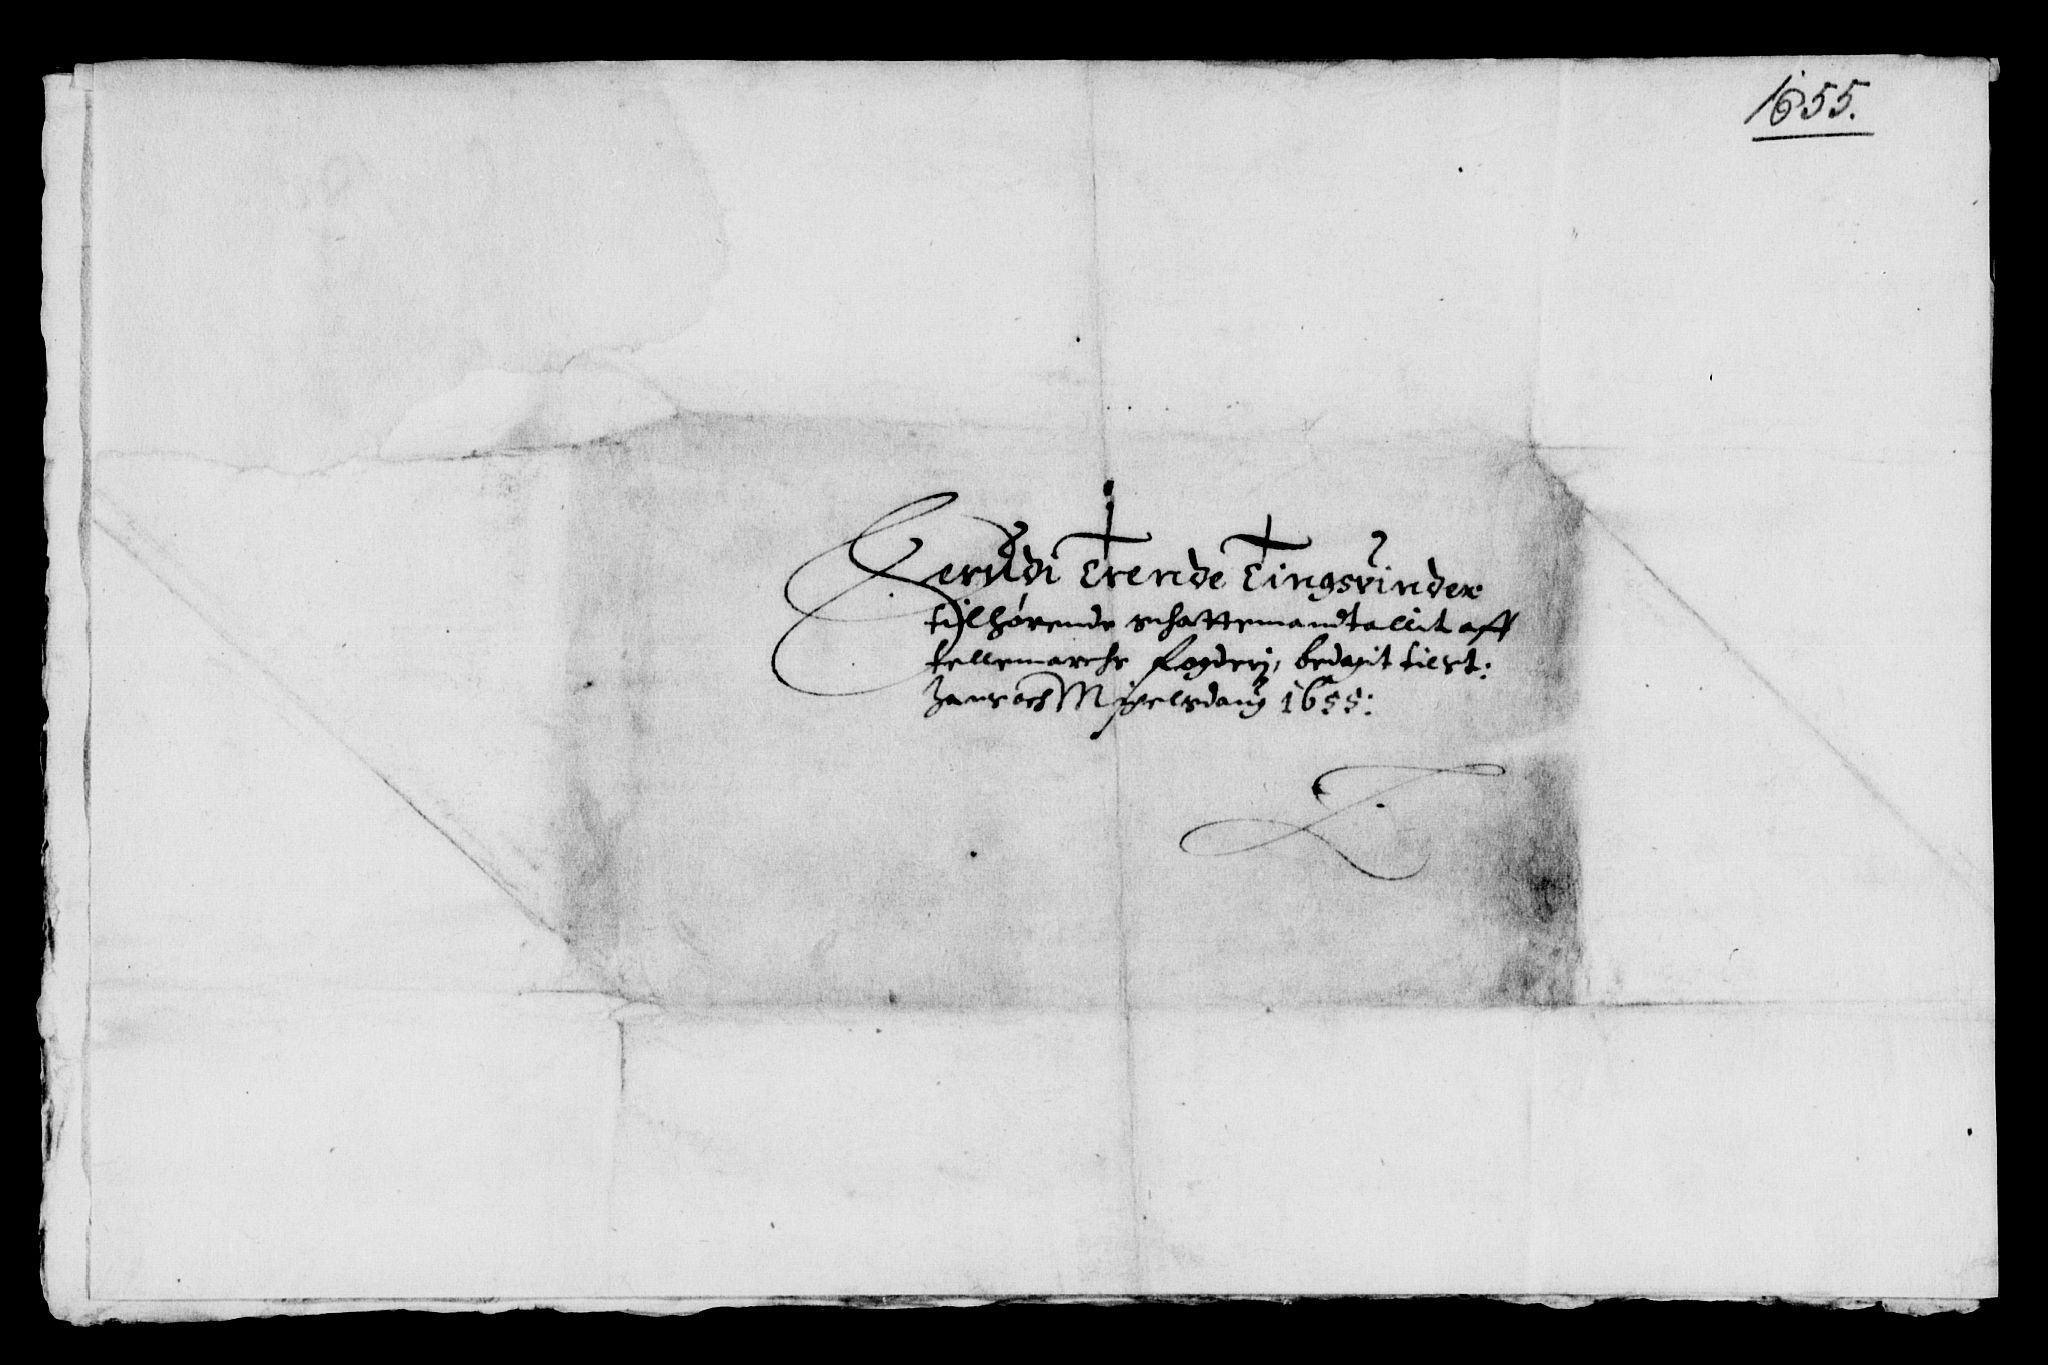 1655.
Herudi Trende Tingsvinder
tilhørende schattemandtallit aff
tellemarchs fogderj, bedagit til st:
Hans och Michelsdaug 1655: